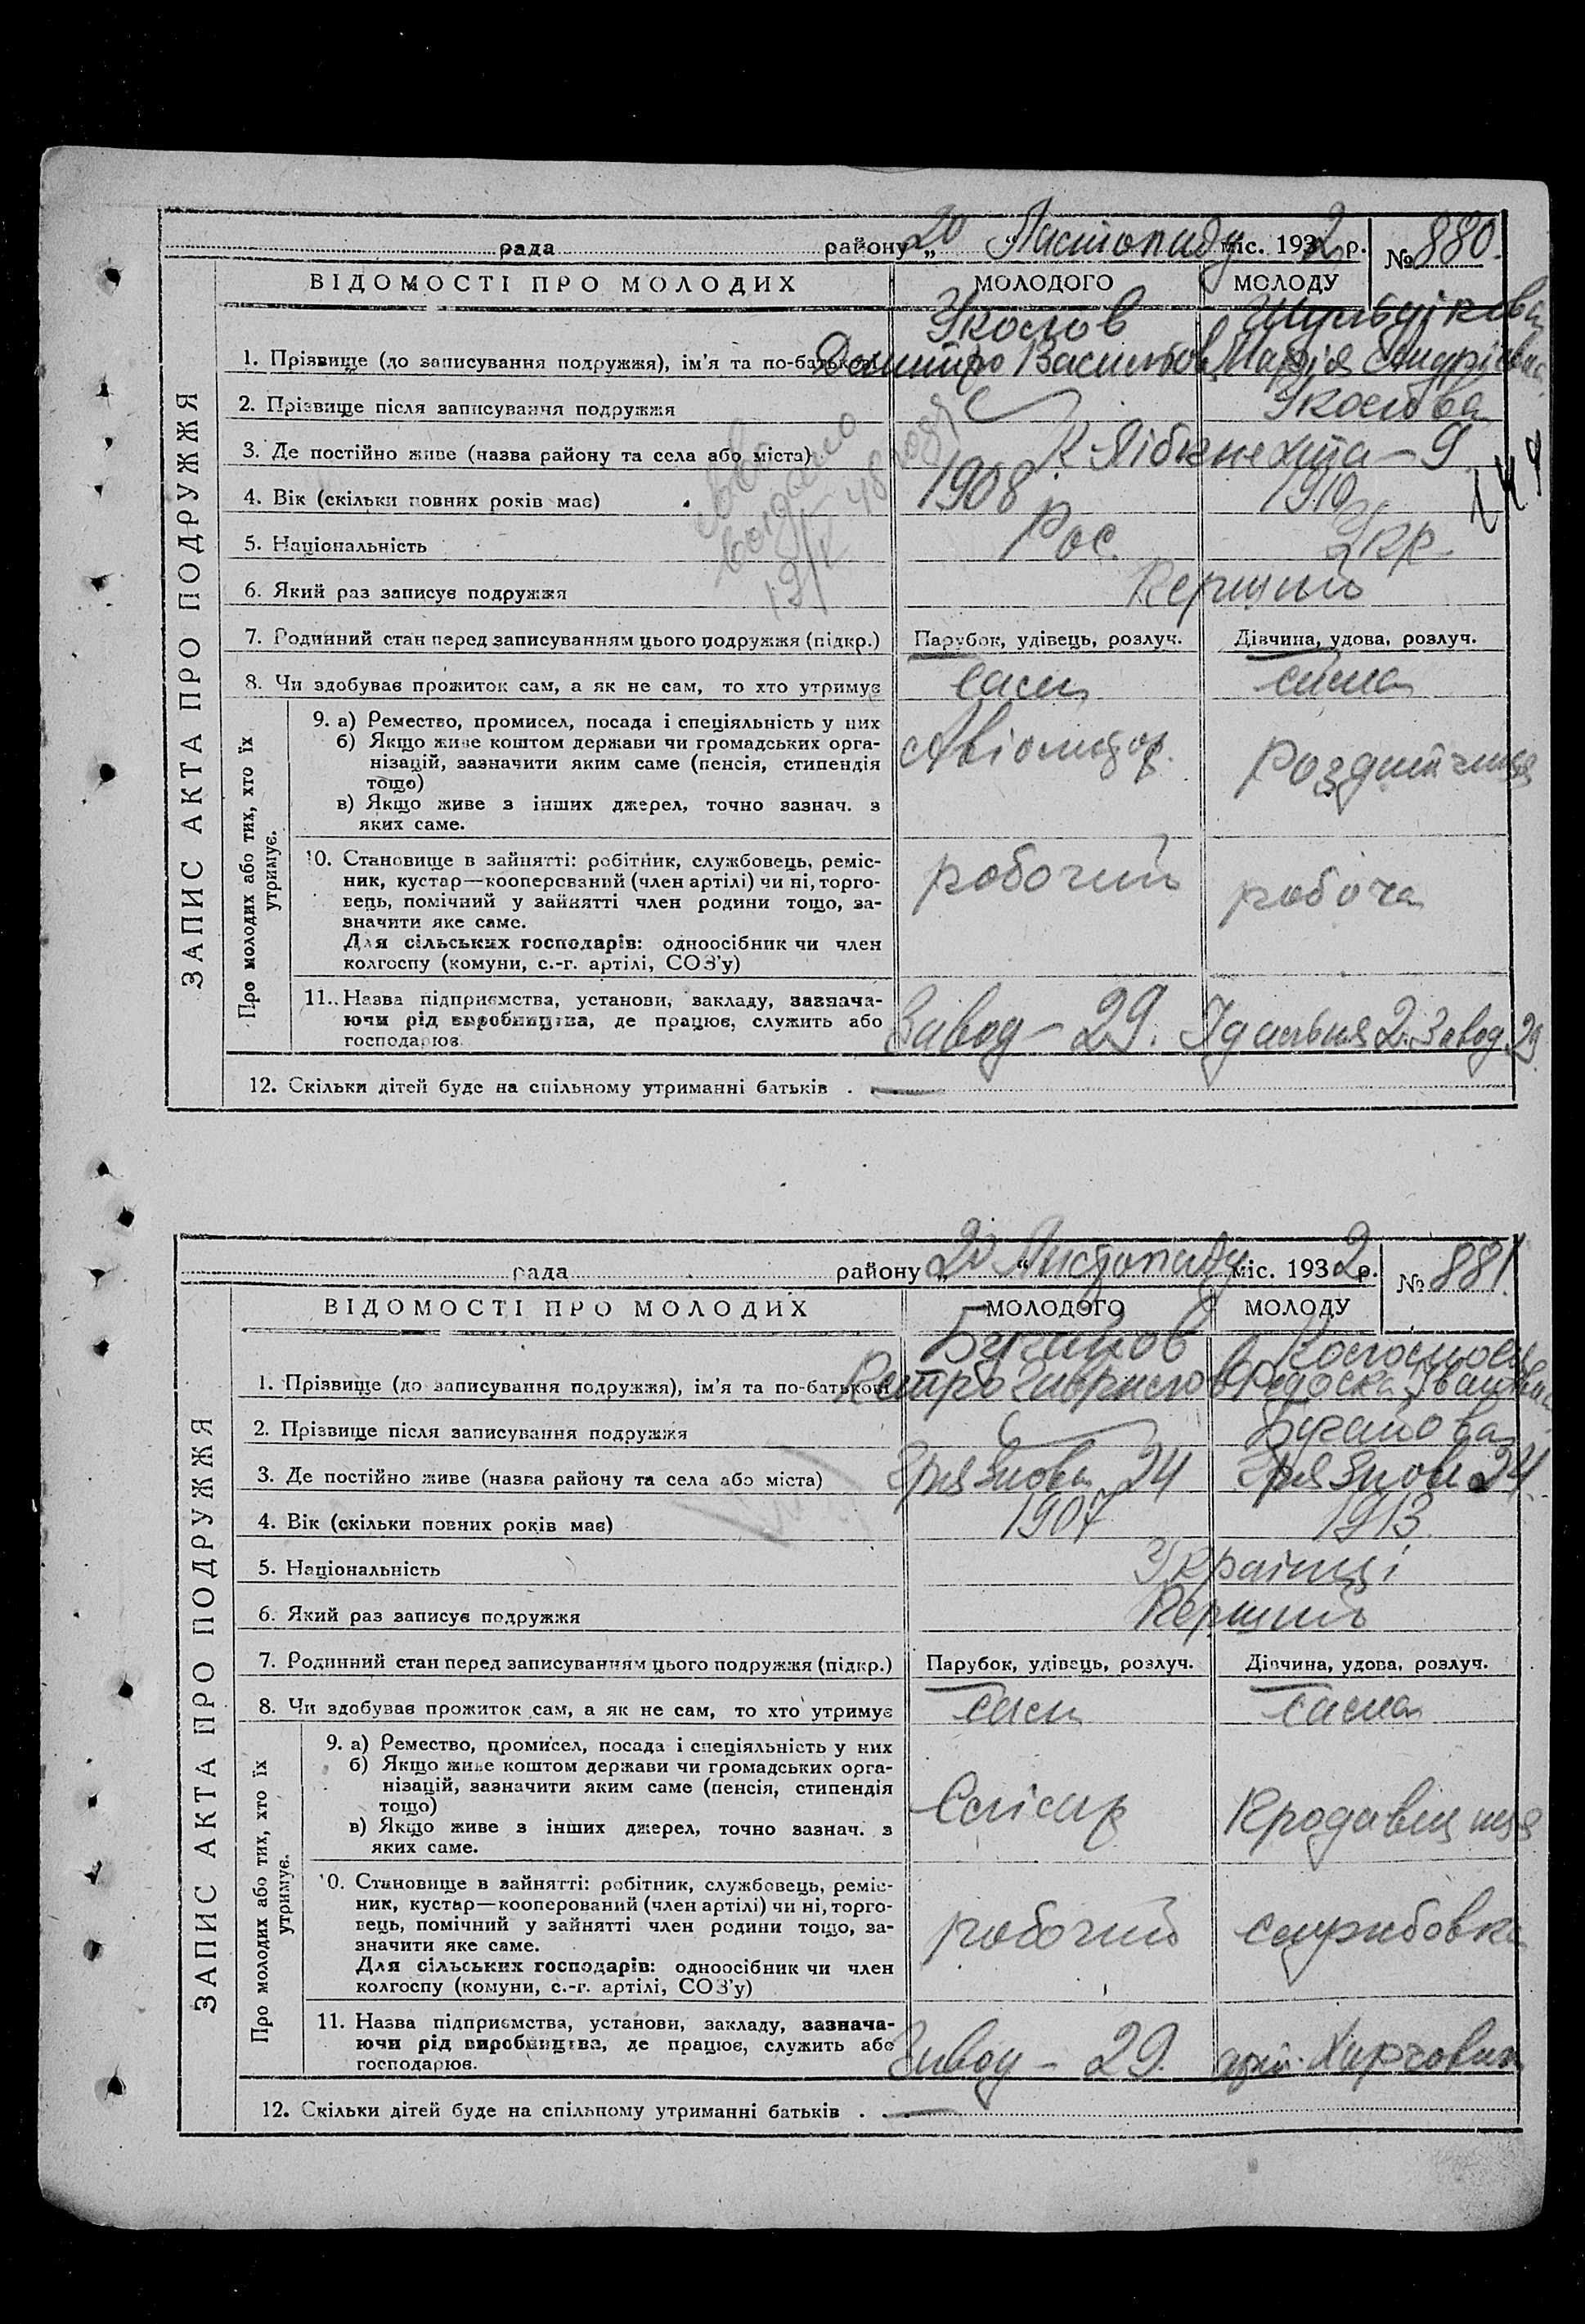 рада району „20" Листопаду міс. 1932 р. № 880.
ВІДОМОСТІ ПРО МОЛОДИХ МОЛОДОГО МОЛОДУ
Уколов
1. Прізвище (до записування подружжя), ім'я та по-батькові Дмитро Васильов Марія
2. Прізвище після записування подружжя Уколова
3. Де постійно живе (назва району та села або міста) К Лібкнехта – 9
4. Вік (скільки повних років має) 1908 1910
5. Національність Рос. Укр.
6. Який раз записує подружжя Перший
7. Родинний стан перед записуванням цього подружжя (підкр.) Парубок, удівець, розлуч. Дівчина, удова, розлуч.
8. Чи здобуває прожиток сам, а як не сам, то хто утримує сам сама
ЗАПИС АКТА ПРО ПОДРУЖЖЯ
Про молодих або тих, хто їх утримує.
9. а) Ремество, промисел, посада і спеціяльність у них
б) Якщо живе коштом держави чи громадських орга-
нізацій, зазначити яким саме (пенсія, стипендія
тощо)
в) Якщо живе з інших джерел, точно зазнач. з
яких саме.
10. Становище в зайнятті: робітник, службовець, реміс-
ник, кустар—кооперований (член артілі) чи ні, торго-
вець, помічний у зайнятті член родини тощо, за-
значити яке саме.
Для сільських господарів: одноосібник чи член
колгоспу (комуни, с.-г. артілі, СОЗ'у)
робочий робоча
11. Назва підприємства, установи, закладу, зазнача-
ючи рід виробництва, де працює, служить або
господарює.
Завод – 29. Їдальня 2. Завод 29
12. Скільки дітей буде на спільному утриманні батьків . —
рада району „20" Листопаду міс. 1932 р. № 881.
ВІДОМОСТІ ПРО МОЛОДИХ МОЛОДОГО МОЛОДУ
1. Прізвище (до записування подружжя), ім'я та по-батькові Петро Гаврилов Іванівна
2. Прізвище після записування подружжя
3. Де постійно живе (назва району та села або міста) Грязнова 24 Грязнова 24
4. Вік (скільки повних років має) 1907 1913
5. Національність Українці
6. Який раз записує подружжя Перший
7. Родинний стан перед записуванням цього подружжя (підкр.) Парубок, удівець, розлуч. Дівчина, удова, розлуч.
8. Чи здобуває прожиток сам, а як не сам, то хто утримує сам сама
ЗАПИС АКТА ПРО ПОДРУЖЖЯ
Про молодих або тих, хто їх утримує.
9. а) Ремество, промисел, посада і спеціяльність у них
б) Якщо живе коштом держави чи громадських орга-
нізацій, зазначити яким саме (пенсія, стипендія
тощо)
в) Якщо живе з інших джерел, точно зазнач. з
яких саме.
Слісар Продавщиця
10. Становище в зайнятті: робітник, службовець, реміс-
ник, кустар—кооперований (член артілі) чи ні, торго-
вець, помічний у зайнятті член родини тощо, за-
значити яке саме.
Для сільських господарів: одноосібник чи член
колгоспу (комуни, с.-г. артілі, СОЗ'у)
робочий службовка
11. Назва підприємства, установи, закладу, зазнача-
ючи рід виробництва, де працює, служить або
господарює.
Завод – 29.
12. Скільки дітей буде на спільному утриманні батьків . . —